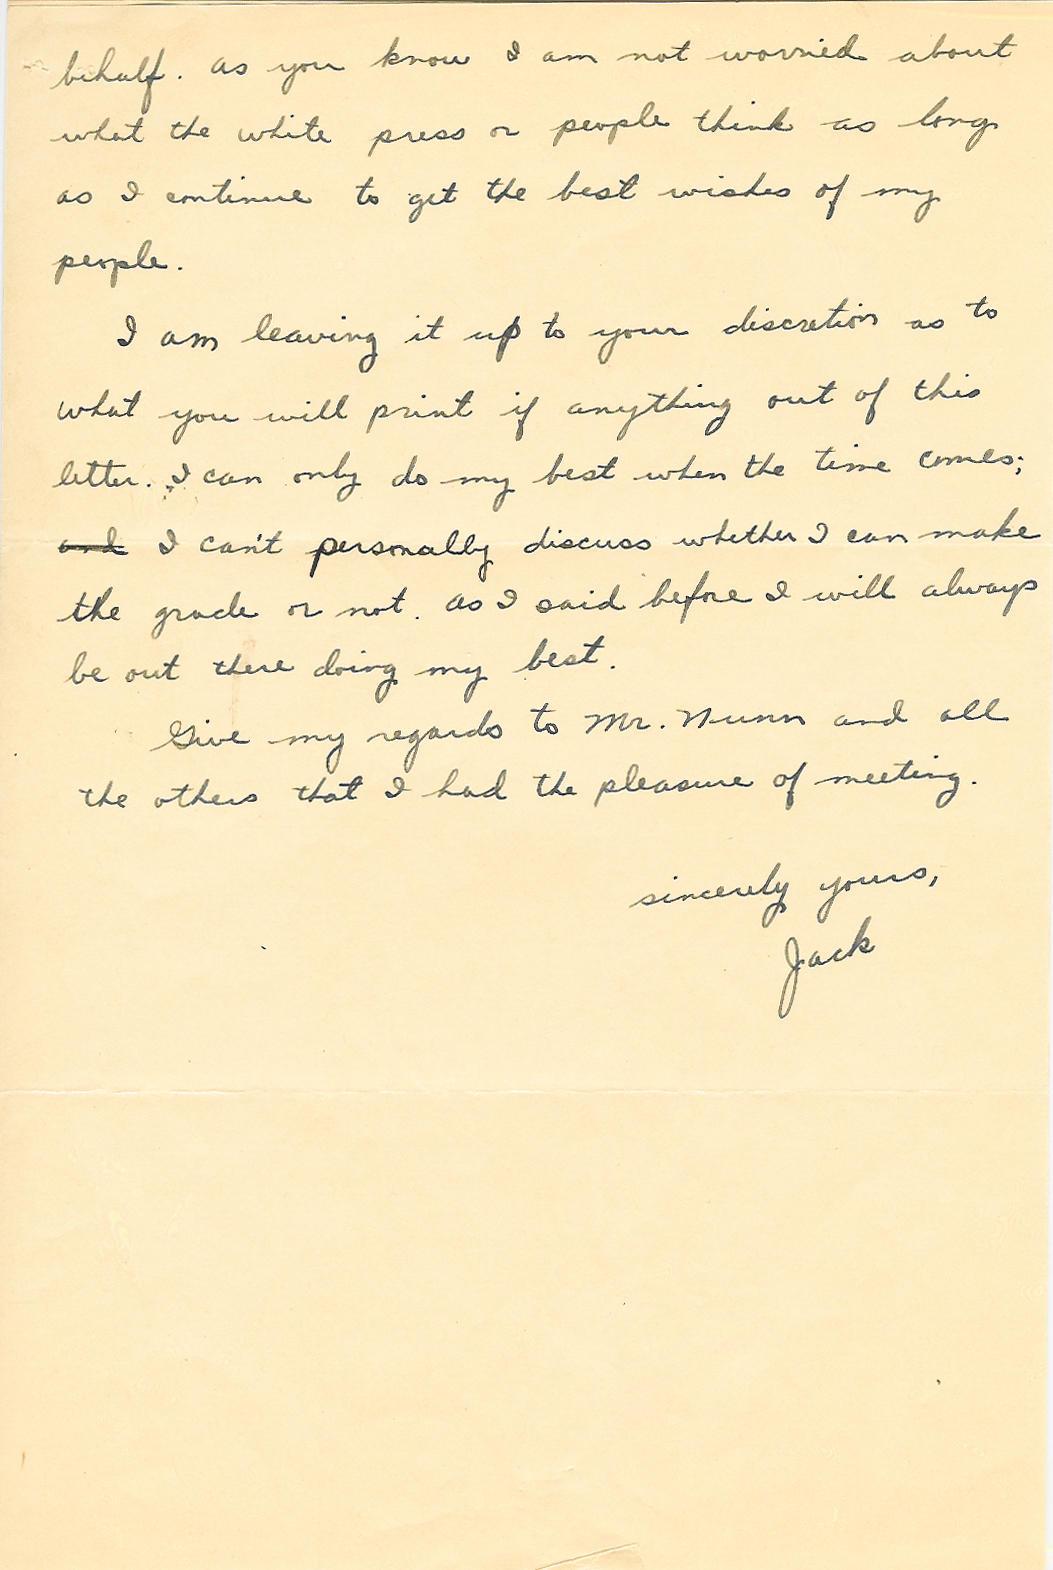 behalf. as you know I am not worried about
what the white press or people think as long
as I continue to get the best wishes of my
people.
I am leaving it up to your discretion as to
what you will print if anything out of this
letter. I can only do my best when the time comes;
and I can't personally discuss whether I can make
the grade or not. as I said before I will always
be out there doing my best.
Give my regards to Mr. Nunn and all
the others that I had the pleasure of meeting.
sincerely yours,
Jack